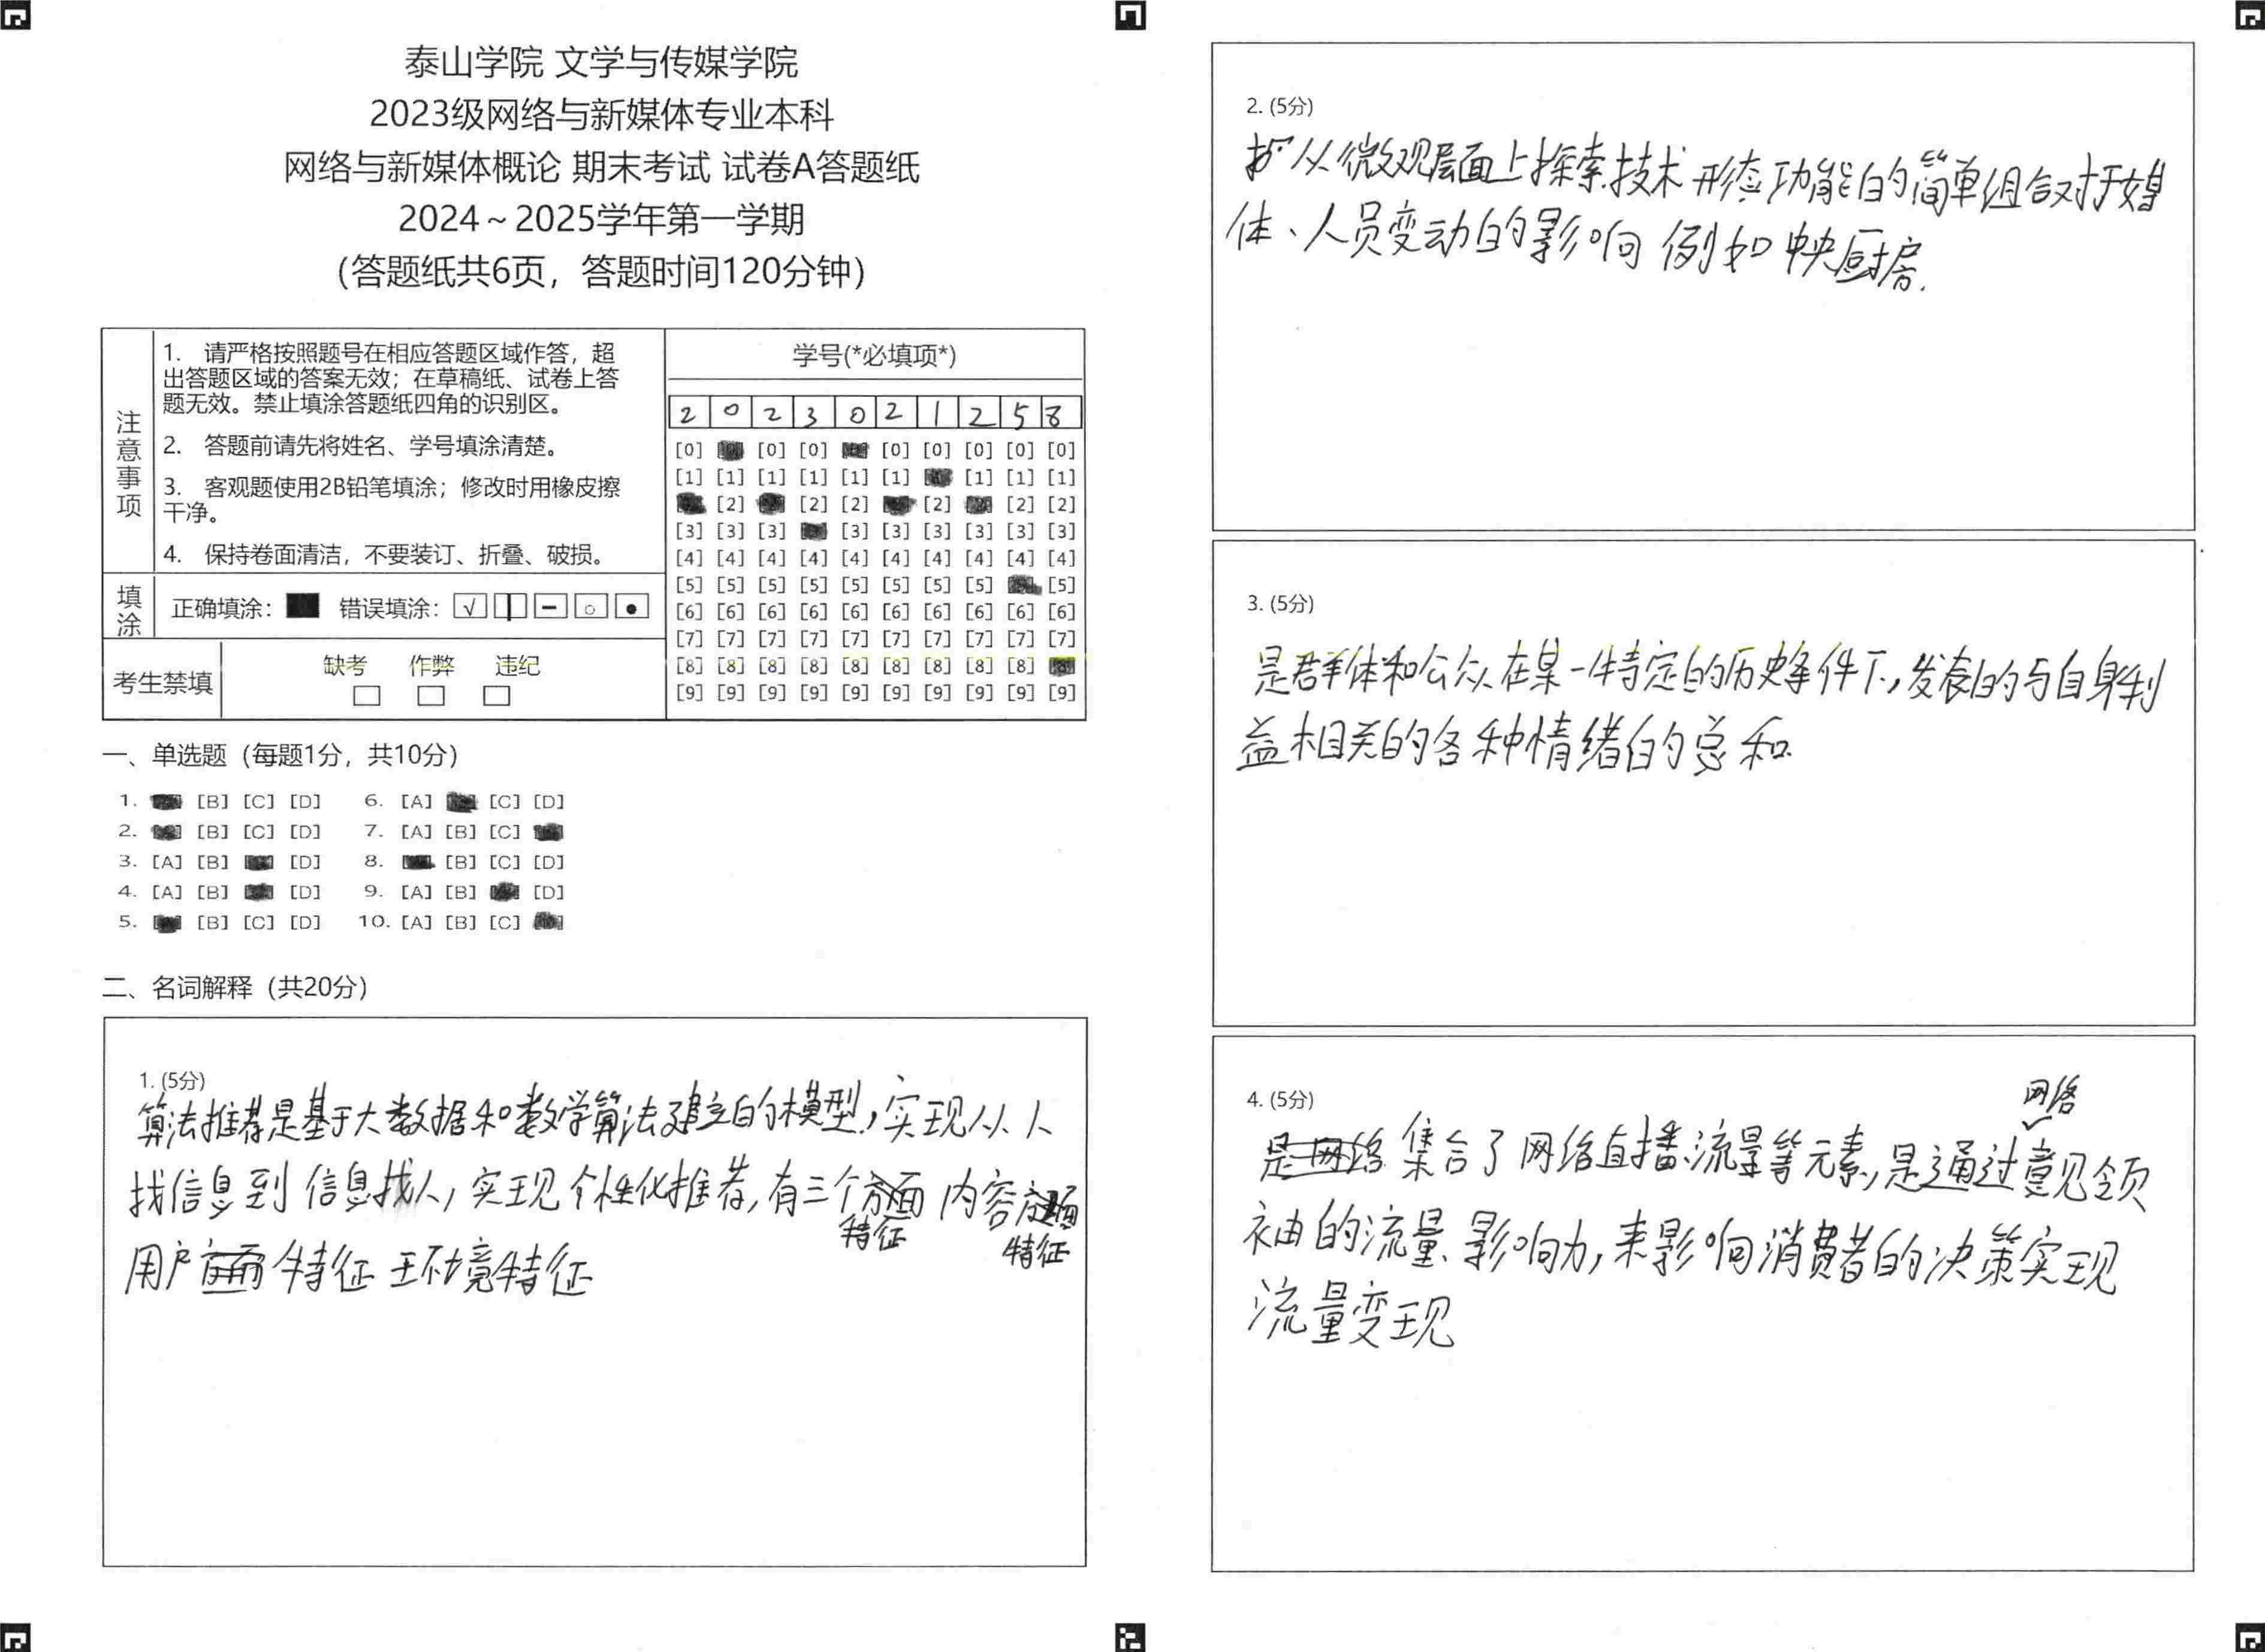 泰山学院 文学与传媒学院
2023级网络与新媒体专业本科
网络与新媒体概论 期末考试 试卷A答题纸
2024～2025学年第一学期
（答题纸共6页，答题时间120分钟）
注意事项
1. 请严格按照题号在相应答题区域作答，超
出答题区域的答案无效；在草稿纸、试卷上答
题无效。禁止填涂答题纸四角的识别区。
2. 答题前请先将姓名、学号填涂清楚。
3. 客观题使用2B铅笔填涂；修改时用橡皮擦
干净。
4. 保持卷面清洁，不要装订、折叠、破损。
填涂
正确填涂： 错误填涂：
考生禁填
缺考 作弊 违纪
学号(*必填项*)
2 0 2 3 0 2 1 2 5 8
[0] [0] [0] [0] [0] [0] [0] [0]
[1] [1] [1] [1] [1] [1] [1] [1] [1]
[2] [2] [2] [2] [2] [2]
[3] [3] [3] [3] [3] [3] [3] [3] [3]
[4] [4] [4] [4] [4] [4] [4] [4] [4] [4]
[5] [5] [5] [5] [5] [5] [5] [5] [5]
[6] [6] [6] [6] [6] [6] [6] [6] [6] [6]
[7] [7] [7] [7] [7] [7] [7] [7] [7] [7]
[8] [8] [8] [8] [8] [8] [8] [8] [8] [8]
[9] [9] [9] [9] [9] [9] [9] [9] [9] [9]
一、单选题（每题1分，共10分）
1. [B] [C] [D] 6. [A] [C] [D]
2. [B] [C] [D] 7. [A] [B] [C]
3. [A] [B] [D] 8. [B] [C] [D]
4. [A] [B] [D] 9. [A] [B] [D]
5. [B] [C] [D] 10. [A] [B] [C]
二、名词解释（共20分）
1. (5分)
算法推荐是基于大数据和数学算法建立的模型，实现从人
找信息到信息找人，实现个性化推荐，有三个方面 内容
特征 特征
用户 特征 环境特征
2. (5分)
从微观层面上探索技术形态功能的简单组合对于媒
体、人员变动的影响 例如中央厨房.
3. (5分)
是群体和公众在某一特定的历史条件下，发表的与自身利
益相关的各种情绪的总和
4. (5分)
网络
是网络 集合了网络直播、流量等元素，是通过意见领
袖的流量、影响力，来影响消费者的决策实现
流量变现